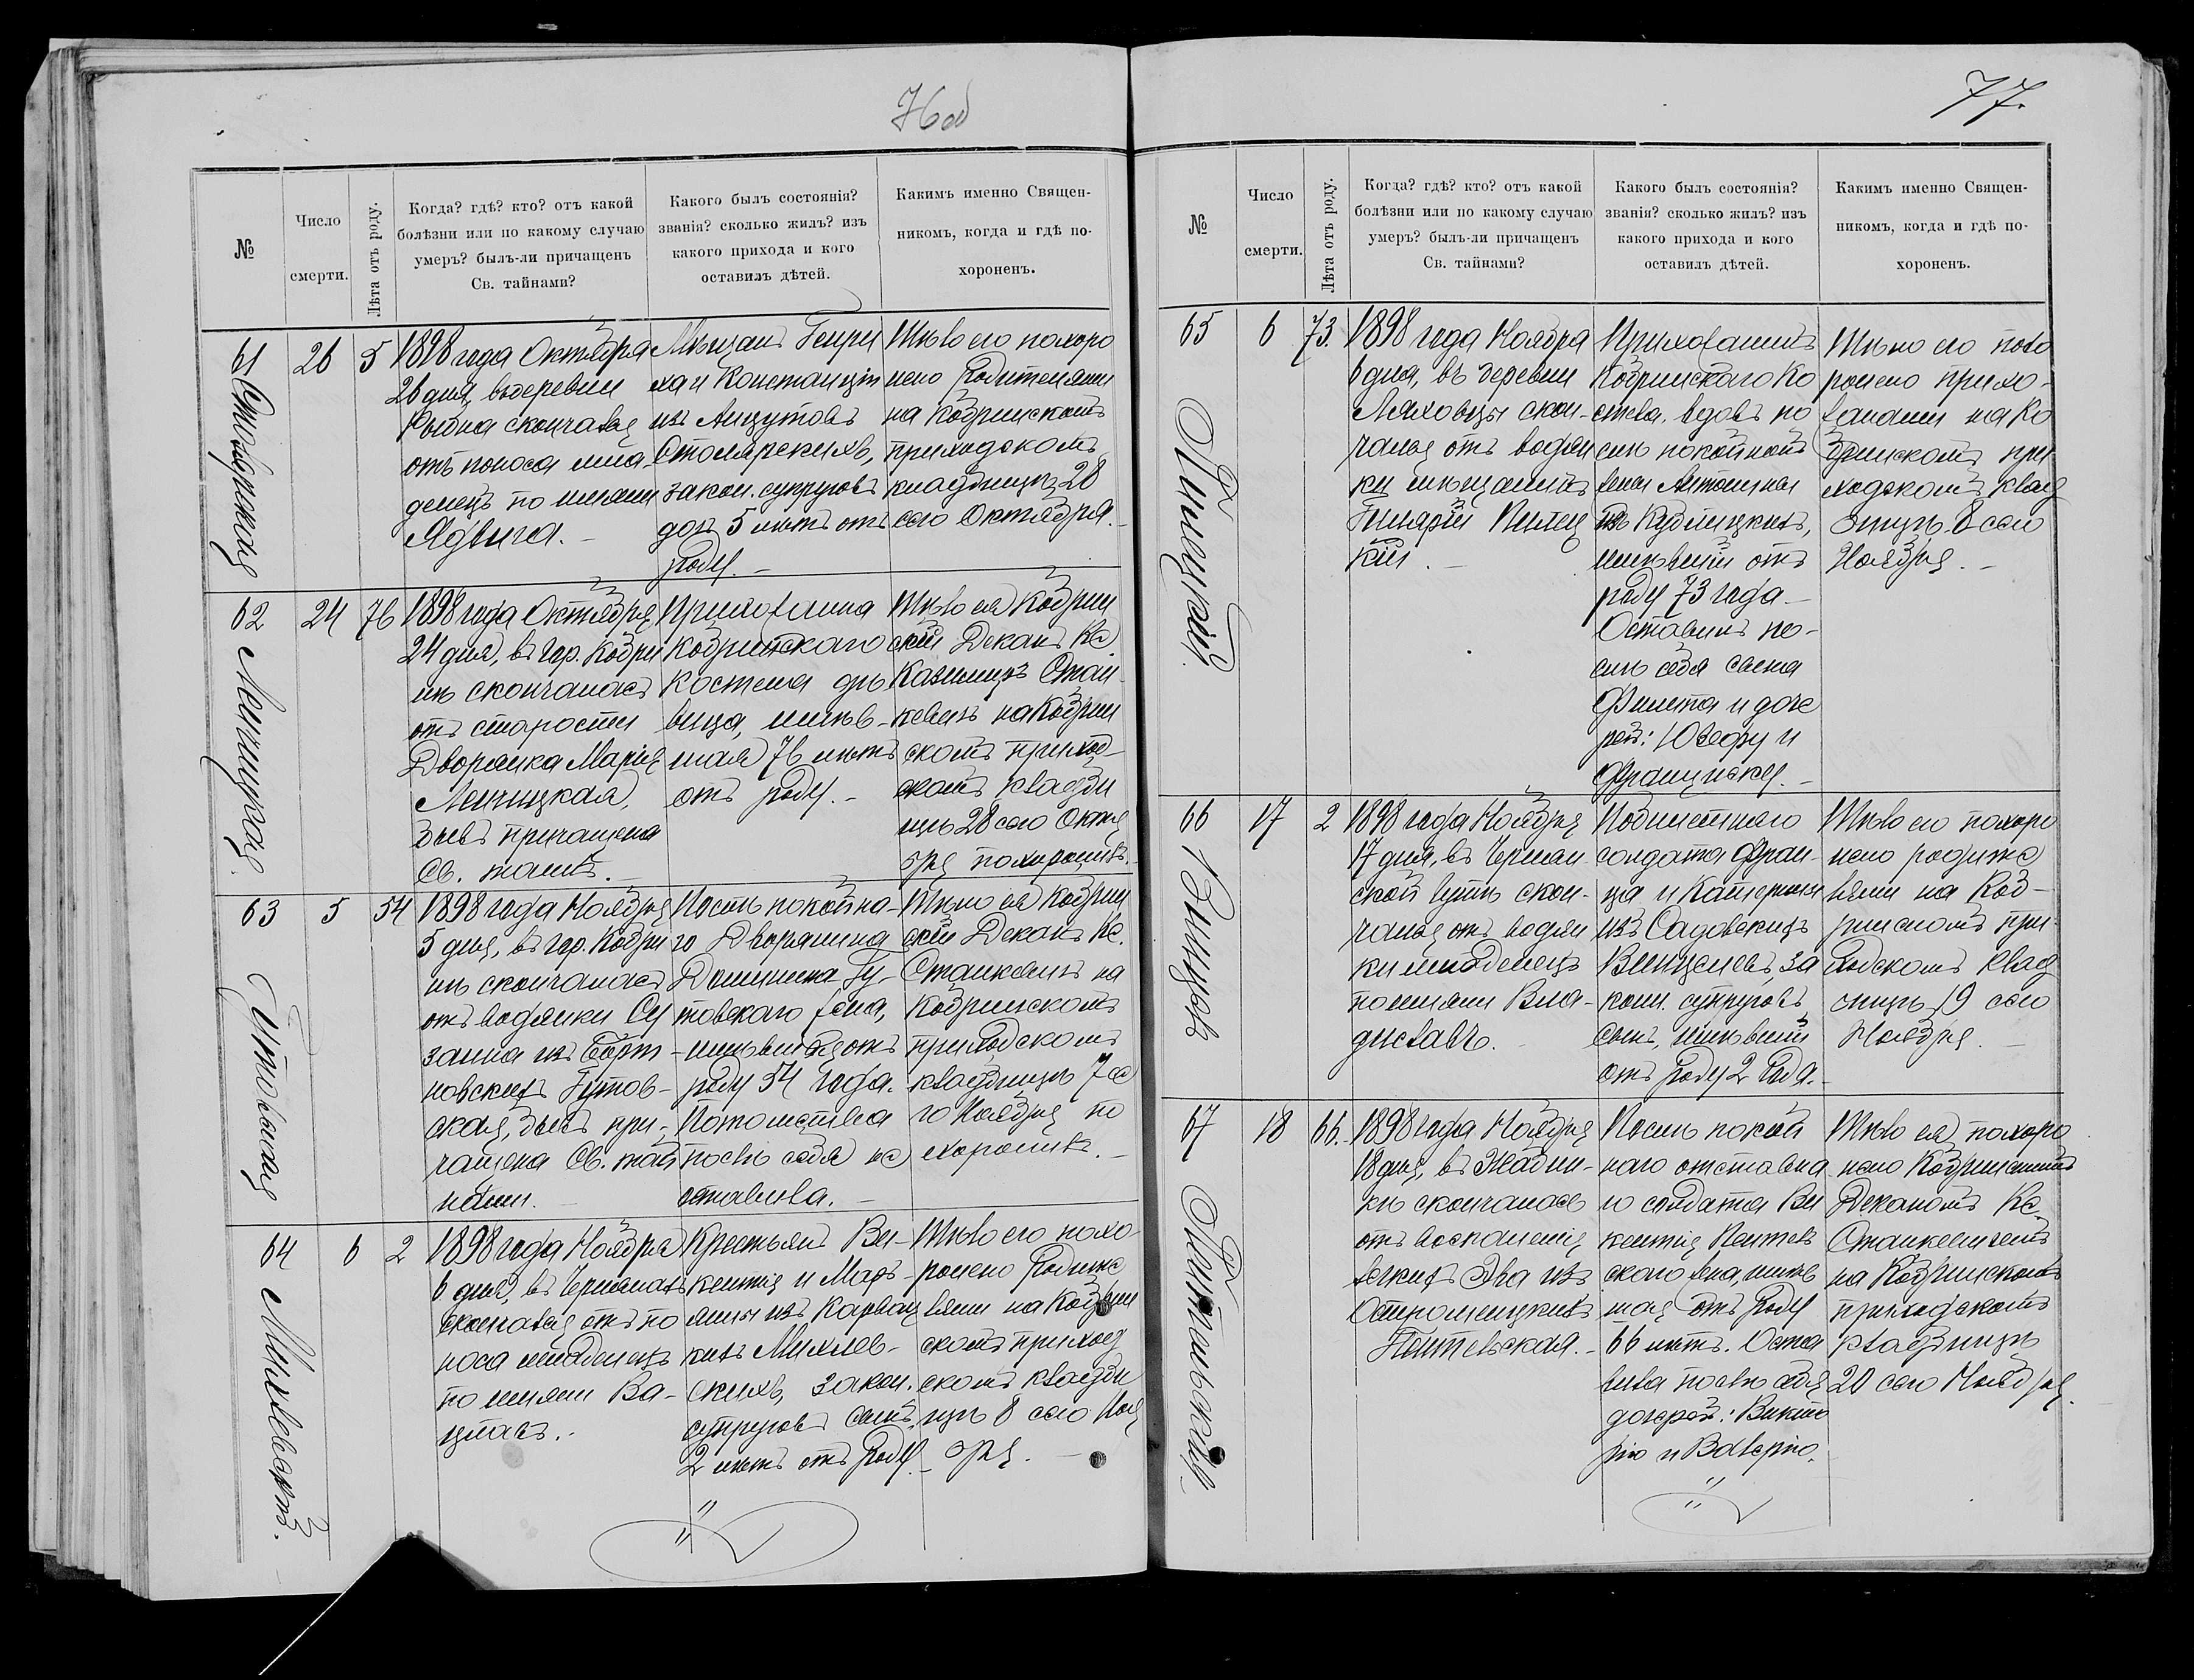 76 об
№
Число
смерти.
Лѣта отъ роду.
Когда? гдѣ? кто? отъ какой
болѣзни или по какому случаю
умеръ? былъ-ли причащенъ
Св. тайнами?
Какого былъ состоянія?
званія? сколько жилъ? изъ
какого прихода и кого
оставилъ дѣтей.
Какимъ именно Священ-
никомъ, когда и гдѣ по-
хороненъ.
61
Столярская
26
5
1898 года Октября
26 дня, въ деревни
скончалась
отъ поноса мла-
денецъ по имени
Ядвига. -
Мѣщанъ Генри
ха и Константіи
изъ
Столярскихъ,
закон. супруговъ
дочь 5 лѣтъ отъ
роду. -
Тѣло его похоро
нено Родителями
на Кобринскомъ
приходскомъ
кладбищѣ 28
сего Октября. -
62
Ленчицкая
24
76
1898 года Октября
24 дня, въ гор. Кобри
нѣ скончалась
отъ старости
Дворянка Марія
Ленчицкая,
бывъ причащена
Св. таинъ. -
Прихожанка
Кобринскаго
Костела дѣ
вица, имѣв-
шая 76 лѣтъ
отъ роду. -
Тѣло ея Кобрин
скій Деканъ Кс.
Казимиръ Стан-
кевичъ на Кобрин
скомъ приход-
скомъ кладби
щѣ 28 сего Октя
бря похоронилъ. -
63
Гутовская
5
54
1898 года Ноября
5 дня, въ гор. Кобри
нѣ скончалась
отъ водянки Су
занна изъ Борт-
новскихъ Гутов-
ская, бывъ при-
чащена Св. тай
нами. -
Послѣ покойна-
го Дворянина
Доминика Гу-
товскаго жена,
имѣвшая отъ
роду 54 года.
Потомства
послѣ себя не
оставила. -
Тѣло ея Кобрин
скій Деканъ Кс.
Станкевичъ на
Кобринскомъ
приходскомъ
кладбищѣ 7 се
го Ноября по
хоронилъ. -
64
Михлевскій.
6
2
1898 года Ноября
6 дня, въ
скончался отъ по
носа младенецъ
по имени Ва-
цлавъ. -
Крестьянъ Ви-
кентія и Марь-
янны изъ
кихъ Михлев-
скихъ, закон.
супруговъ сынъ,
2 лѣтъ отъ роду. -
Тѣло его похо-
ронено Родите
лями на Кобрин
скомъ приход
скомъ кладби
щѣ 8 сего Ноя
бря. -
77.
№
Число
смерти.
Лѣта отъ роду.
Когда? гдѣ? кто? отъ какой
болѣзни или по какому случаю
умеръ? былъ-ли причащенъ
Св. тайнами?
Какого былъ состоянія?
званія? сколько жилъ? изъ
какого прихода и кого
оставилъ дѣтей.
Какимъ именно Священ-
никомъ, когда и гдѣ по-
хороненъ.
65
6
73.
1898 года Ноября
6 дня, въ деревни
Ляховцы скон-
чался отъ водян
ки мѣщанинъ
Гиларій
кій. -
Прихожанинъ
Кобринскаго Ко
стела, вдовъ по
слѣ покойной
жены Антонины
изъ Кудлицкихъ,
имѣвшій отъ
роду 73 года -
Оставилъ по-
слѣ себя сына
и доче
рей: Юзефу и
Францишку. -
Тѣло его похо
ронено прихо-
жанами на Ко
бринскомъ при
ходскомъ клад
бищѣ 8 сего
Ноября. -
66
17
2
1898 года Ноября
17 дня, въ
скон-
чался отъ водян
ки младенецъ
по имени Вла-
диславъ. -
солдата Фран-
ца и Катерины
изъ Садовскихъ
за
кон. супруговъ
сынъ, имѣвшій
отъ роду 2 года. -
Тѣло его похоро
нено родите
лями на Коб-
ринскомъ при-
ходскомъ клад
бищѣ 19 сего
Ноября. -
67
18
66.
1898 года Ноября
18 дня, въ
кѣ скончалась
отъ воспаленія
легкихъ Эва изъ
Остромецкихъ
Послѣ покой
наго отставна
го солдата Ви
кентія
скаго жена, имѣв
шая отъ роду
66 лѣтъ. Оста
вила послѣ себя
дочерей: Викто
рію и Валерію.
Тѣло ея похоро
нено Кобринскимъ
Деканомъ Кс.
Станкевичемъ
на Кобринскомъ
приходскомъ
кладбищѣ
20 сего Ноября.